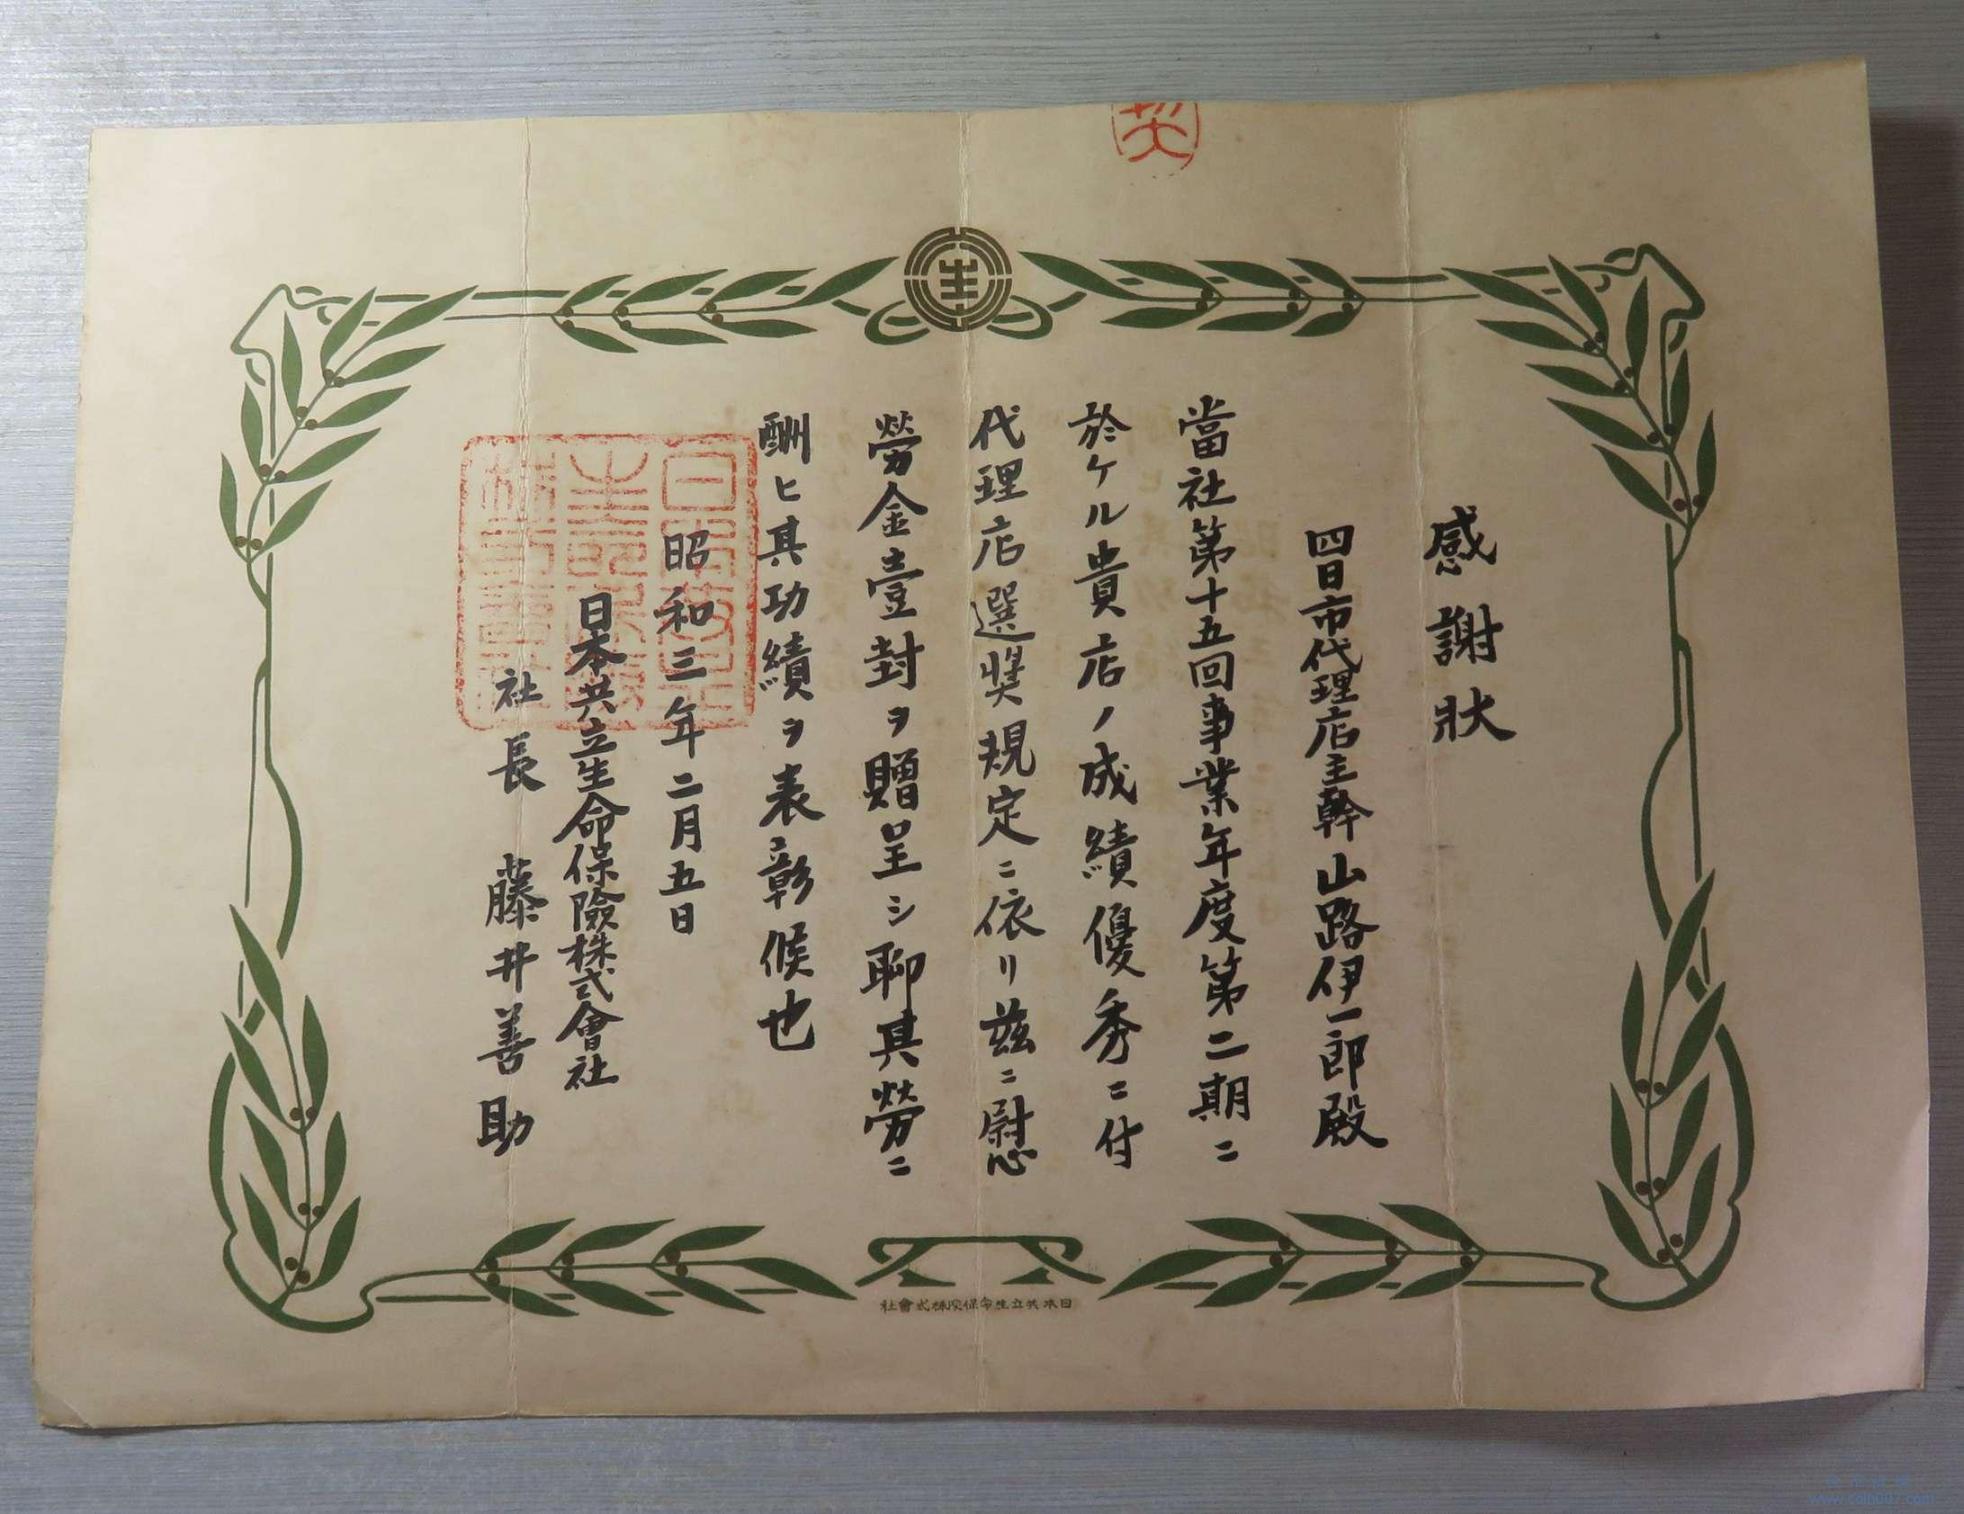 感謝狀
四日市代理店主幹 山路伊一郎殿
當社第十五回事業年度第二期ニ
於ケル貴店ノ成績優秀ニ付
代理店選奬規定ニ依リ茲ニ慰
勞金壹封ヲ贈呈シ聊其勞ニ
酬ヒ其功績ヲ表彰候也
昭和三年二月五日
日本共立生命保險株式會社
社長 藤井善助
社會式株險保命生立共本日
www.coin007.com